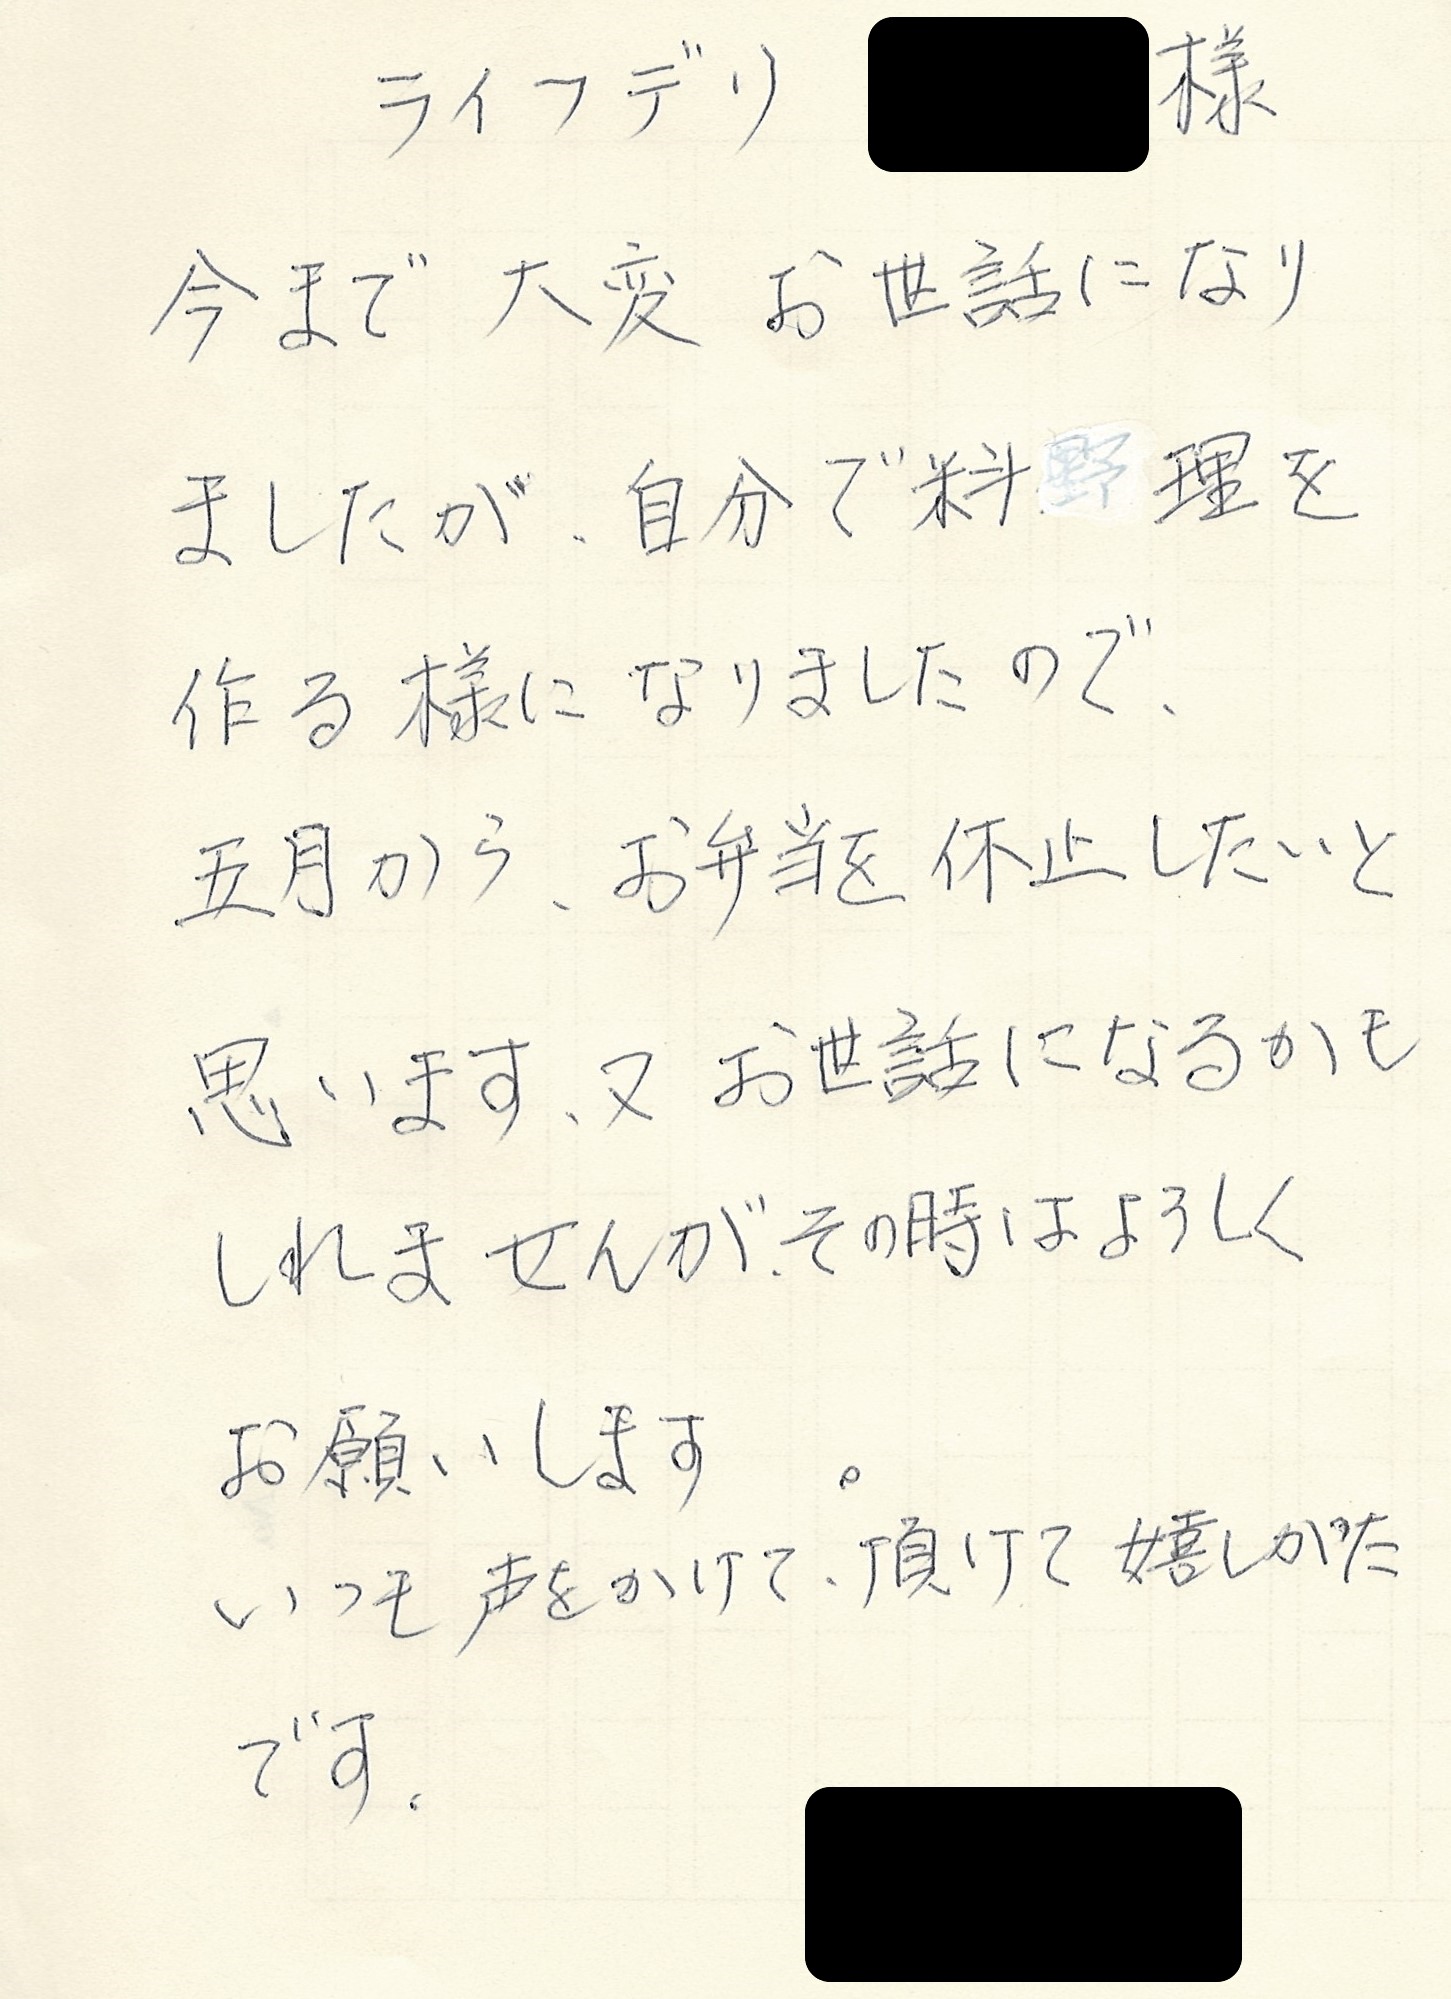 ライフデリ 様
今まで大変お世話になり
ましたが、自分で料理を
作る様になりましたので、
五月から、お弁当を休止したいと
思います、又お世話になるかも
しれませんが、その時はよろしく
お願いします。
いつも声をかけて、頂けて嬉しかった
です。